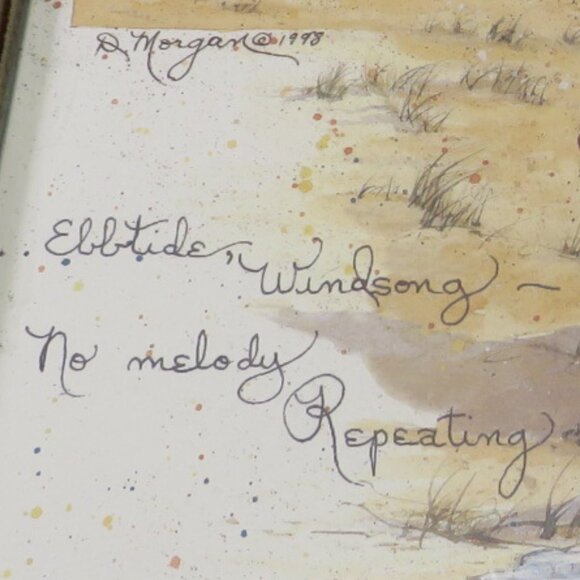 D. Morgan © 1998
..Ebbtide, Windsong –
No melody
Repeating –